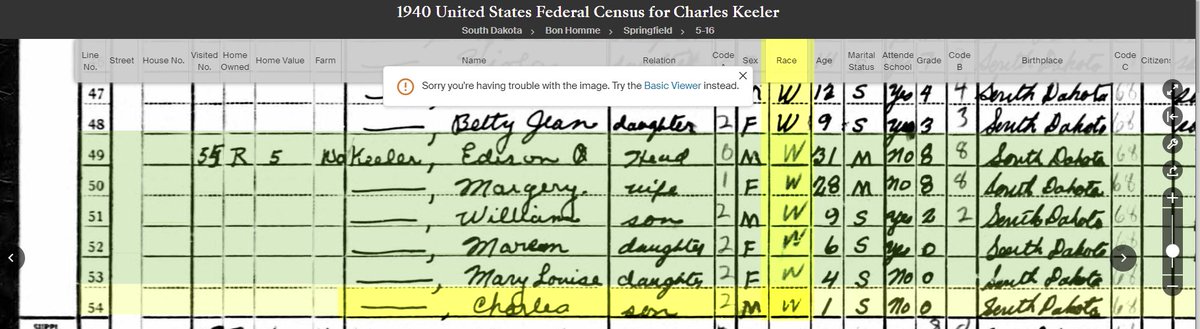 1940 United States Federal Census for Charles Keeler
South Dakota › Bon Homme › Springfield › 5-16
Line No. Street House No. Visited No. Home Owned Home Value Farm Name Relation Code Sex Race Age Marital Status Attende School Grade Code B Birthplace Code C Citizens
Sorry you're having trouble with the image. Try the Basic Viewer instead.
47 W 12 S Yes 4 4 South Dakota 68
48 —, Betty Jean daughter 2 F W 9 S yes 3 3 South Dakota 68
49 55 R 5 No Keeler, Edison head 0 M W 31 M no 8 8 South Dakota 68
50 —, Margery wife 1 F W 28 M no 8 8 South Dakota 68
51 —, William son 2 M W 9 S yes 2 2 South Dakota 68
52 —, daughter 2 F W 6 S yes 0 South Dakota 68
53 —, Mary Louise daughter 2 F W 4 S no 0 South Dakota 68
54 —, Charles son 2 M W 1 S no 0 South Dakota 68
SUPPL